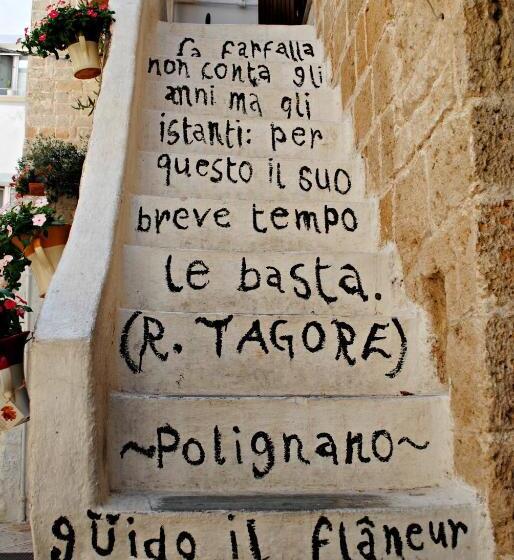 la farfalla
non conta gli
anni ma gli
istanti: per
questo il suo
breve tempo
le basta.
(R. TAGORE)
~Polignano~
gÜido il flâneur